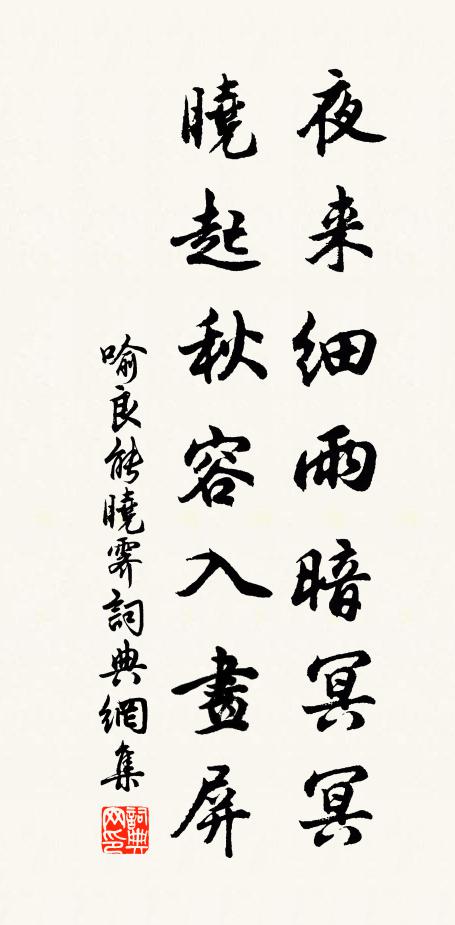 夜来细雨暗冥冥
曉起秋容入畫屏
喻良能曉霽詞典網集
詞典网印